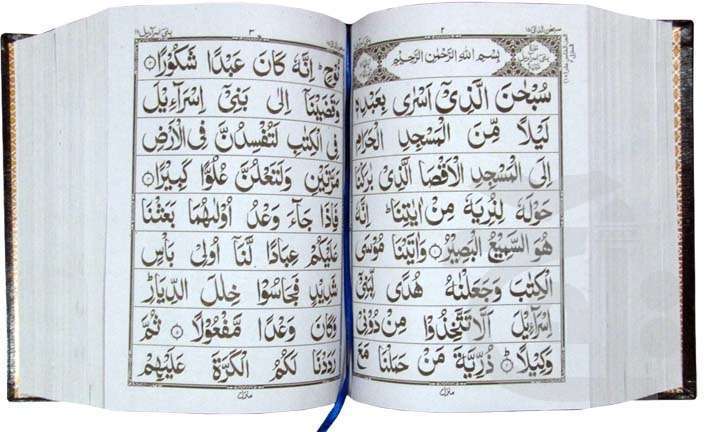 ٢
بِسْمِ اللهِ الرَّحْمٰنِ الرَّحِیْمِ
سُبْحٰنَ الَّذِیْۤ اَسْرٰی بِعَبْدِهٖ
لَیْلًا مِّنَ الْمَسْجِدِ الْحَرَامِ
اِلَی الْمَسْجِدِ الْاَقْصَا الَّذِیْ بٰرَكْنَا
حَوْلَهٗ لِنُرِیَهٗ مِنْ اٰیٰتِنَاؕ اِنَّهٗ
هُوَ السَّمِیْعُ الْبَصِیْرُ ۝ وَاٰتَیْنَا مُوْسَی
الْكِتٰبَ وَجَعَلْنٰهُ هُدًی لِّبَنِیْۤ
اِسْرَآءِیْلَ اَلَّا تَتَّخِذُوْا مِنْ دُوْنِیْ
وَكِیْلًا ۝ ذُرِّیَّةَ مَنْ حَمَلْنَا مَعَ
منزل
٣
نُوْحٍؕ اِنَّهٗ كَانَ عَبْدًا شَكُوْرًا ۝
وَقَضَیْنَاۤ اِلٰی بَنِیْۤ اِسْرَآءِیْلَ
فِی الْكِتٰبِ لَتُفْسِدُنَّ فِی الْاَرْضِ
مَرَّتَیْنِ وَلَتَعْلُنَّ عُلُوًّا كَبِیْرًا ۝
فَاِذَا جَآءَ وَعْدُ اُوْلٰىهُمَا بَعَثْنَا
عَلَیْكُمْ عِبَادًا لَّنَاۤ اُولِیْ بَاْسٍ
شَدِیْدٍ فَجَاسُوْا خِلٰلَ الدِّیَارِؕ
وَكَانَ وَعْدًا مَّفْعُوْلًا ۝ ثُمَّ
رَدَدْنَا لَكُمُ الْكَرَّةَ عَلَیْهِمْ
منزل